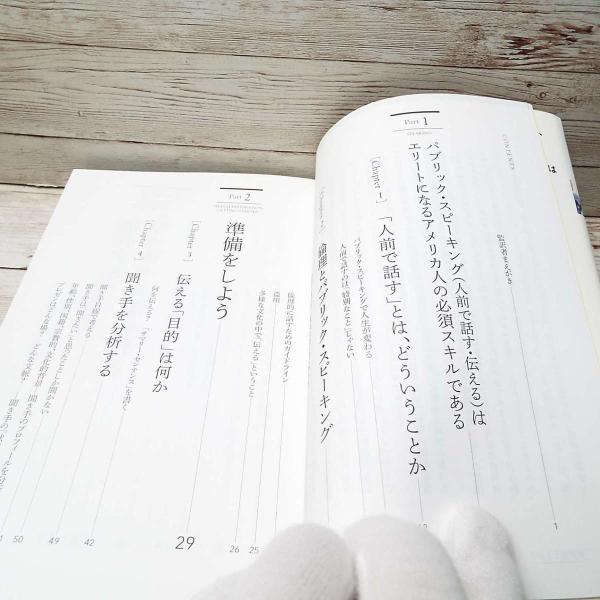 CONTENTS
監訳者まえがき
1
Part 1
SPEAKING
パブリック・スピーキング(人前で話す・伝える)は
エリートになるアメリカ人の必須スキルである
[Chapter 1]
「人前で話す」とは、どういうことか
パブリック・スピーキングで人生が変わる
人前で話すのは、「特別なこと」じゃない
倫理とパブリック・スピーキング
倫理的に話すためのガイドライン
盗用
多様な文化の中で「伝える」ということ
25
26
Part 2
準備をしよう
29
[Chapter 3]
伝える「目的」は何か
何を伝える？
「サマリー・センテンス」を書く
42
[Chapter 4]
聞き手を分析する
49
聞き手目線で考える
50
聞き手は「聞きたい」と思ったことしか聞かない
年齢、性別、国籍、宗教的・文化的背景
聞き手のプロフィールを
プレゼンはどんな場？
どんな文脈？
聞き手の